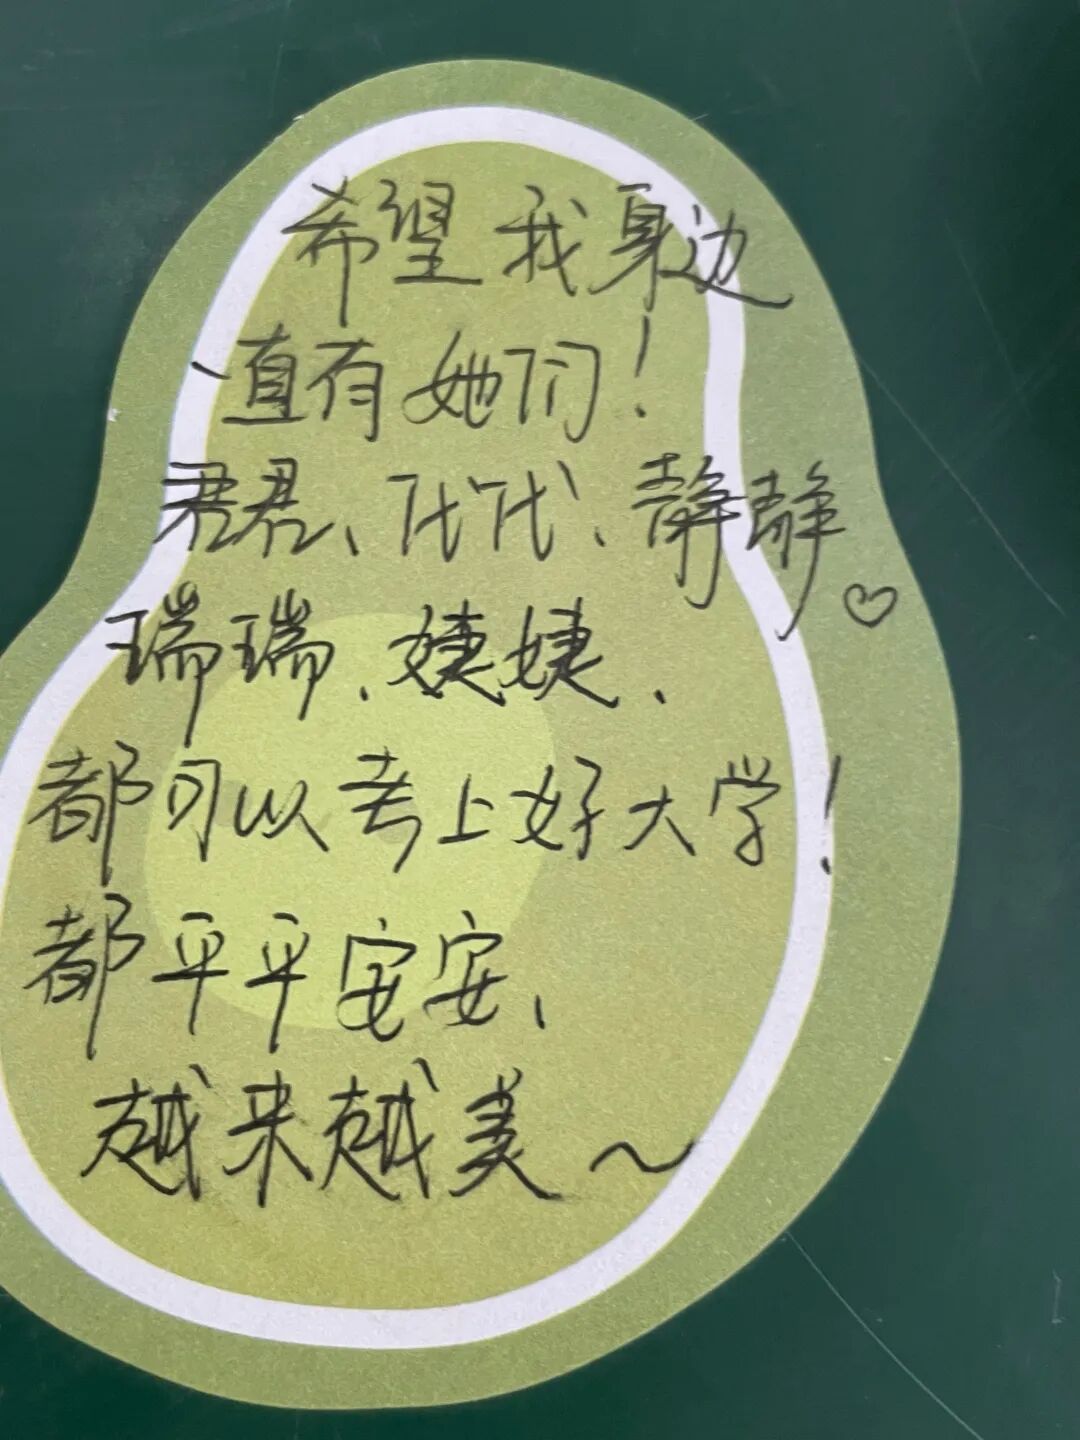 希望我身边
一直有她们!
君君、代代、静静♡
瑞瑞、婕婕、
都可以考上好大学!
都平平安安、
越来越美~